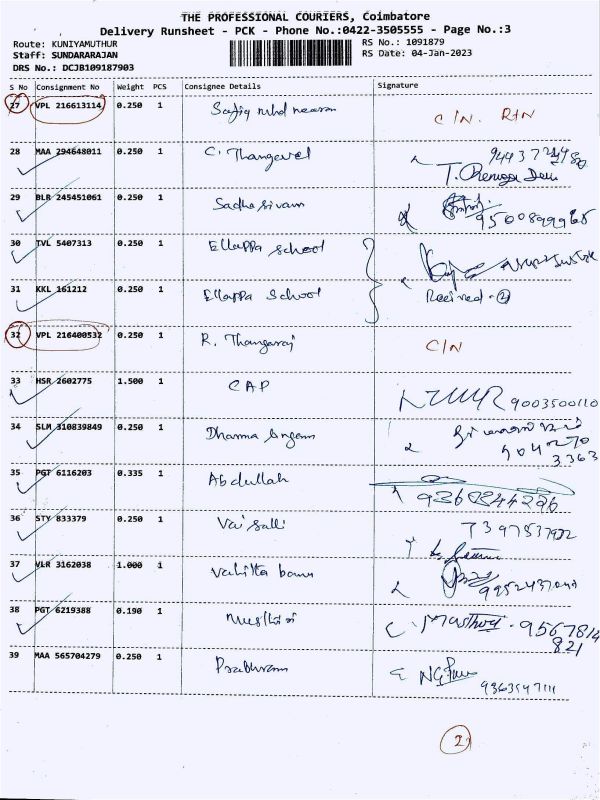 THE PROFESSIONAL COURIERS, Coimbatore
Delivery Runsheet - PCK - Phone No.:0422-3505555 - Page No.:3
Route: KUNIYAMUTHUR RS No.: 1091879
Staff: SUNDARARAJAN RS Date: 04-Jan-2023
DRS No.: DCJB109187903
S No Consignment No Weight PCS Consignee Details Signature
27 VPL 216613114 0.250 1 C/N. R+N
28 MAA 294648011 0.250 1 C. Thangavel
29 BLR 245451061 0.250 1 Sadhasivam 9500899965
30 TVL 5407313 0.250 1 Ellappa School
31 KKL 161212 0.250 1 Ellappa School Received - 2
32 VPL 216400532 0.250 1 R. Thangaraj C/N
33 HSR 2602775 1.500 1 CAP 9003500110
34 SLM 310839849 0.250 1 Dharma
35 PGT 6116203 0.335 1 Abdullah 9360844296
36 STY 833379 0.250 1
37 VLR 3162038 1.000 1 Vahitha banu
38 PGT 6219388 0.190 1 9567814
821
39 MAA 565704279 0.250 1 Prabhuram
2